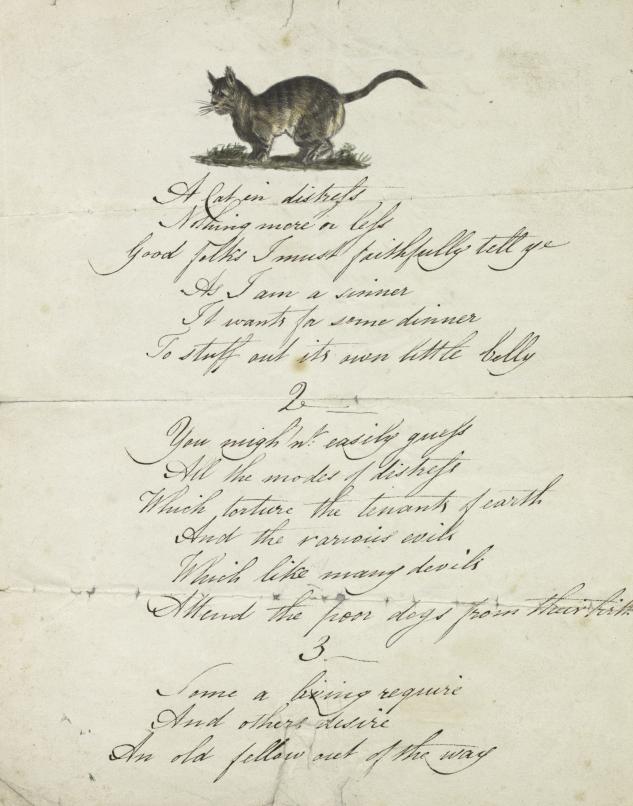 A Cat in distress
Nothing more or less
Good folks I must faithfully tell ye
As I am a sinner
It wants for some dinner
To stuff out its own little belly
2
You migh'nt easily guess
All the modes of distress
Which torture the tenants of earth
And the various evils
Which like many devils
Attend the poor dogs from their birth
3
Some a living require
And others desire
An old fellow out of the way